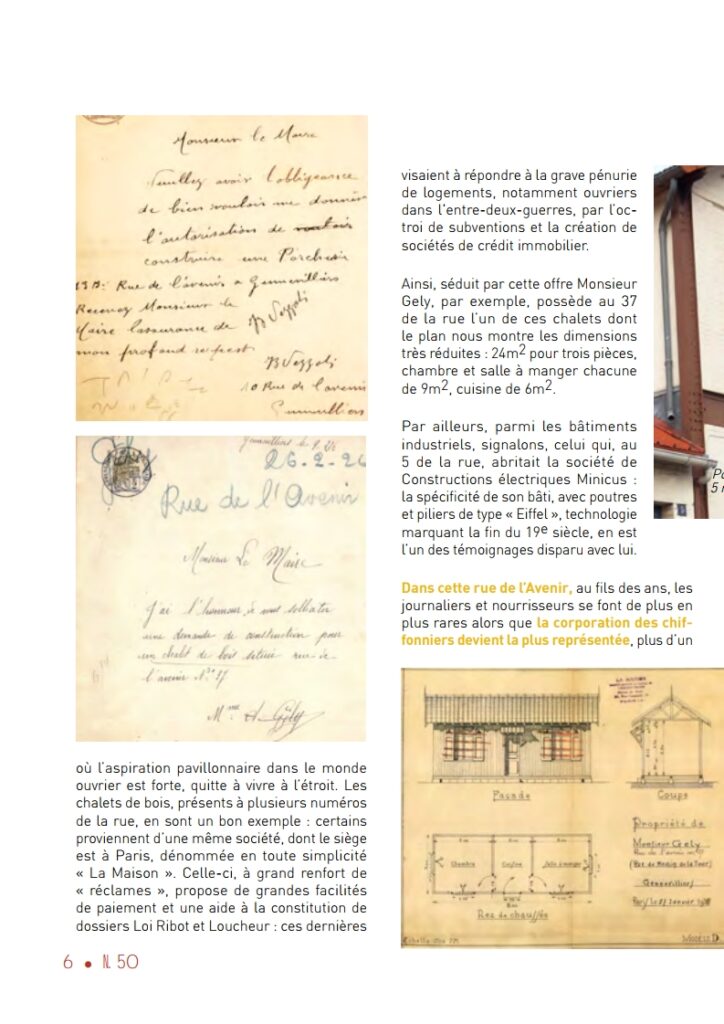 Monsieur le Maire
Veuillez avoir l'obligeance
de bien vouloir me donner
l'autorisation de vouloir
construire une Porcherie
13B: Rue de l'avenir a Gennevilliers
Recevez Monsieur le
Maire l'assurance de
mon profond respect
10 Rue de l'avenir
Gennevilliers
Gennevilliers le
26-2-26
Rue de l'Avenir
Monsieur Le Maire
J'ai l'honneur, de vous solliciter
une demande de construction pour
un chalet de bois située rue de
l'avenir N° 37
Mme A. Gély
où l'aspiration pavillonnaire dans le monde
ouvrier est forte, quitte à vivre à l'étroit. Les
chalets de bois, présents à plusieurs numéros
de la rue, en sont un bon exemple : certains
proviennent d'une même société, dont le siège
est à Paris, dénommée en toute simplicité
« La Maison ». Celle-ci, à grand renfort de
« réclames », propose de grandes facilités
de paiement et une aide à la constitution de
dossiers Loi Ribot et Loucheur : ces dernières
visaient à répondre à la grave pénurie
de logements, notamment ouvriers
dans l'entre-deux-guerres, par l'oc-
troi de subventions et la création de
sociétés de crédit immobilier.
Ainsi, séduit par cette offre Monsieur
Gely, par exemple, possède au 37
de la rue l'un de ces chalets dont
le plan nous montre les dimensions
très réduites : 24m2 pour trois pièces,
chambre et salle à manger chacune
de 9m2, cuisine de 6m2.
Par ailleurs, parmi les bâtiments
industriels, signalons, celui qui, au
5 de la rue, abritait la société de
Constructions électriques Minicus :
la spécificité de son bâti, avec poutres
et piliers de type « Eiffel », technologie
marquant la fin du 19e siècle, en est
l'un des témoignages disparu avec lui.
Dans cette rue de l'Avenir, au fils des ans, les
journaliers et nourrisseurs se font de plus en
plus rares alors que la corporation des chif-
fonniers devient la plus représentée, plus d'un
LA MAISON
Façade
Coupe
Chambre
Cuisine
Salle à manger
Rez de chaussée
Propriété de
Monsieur Gely
Rue de l'avenir
Gennevilliers
Paris le 21 Janvier
MODÈLE D
6 • NL 50